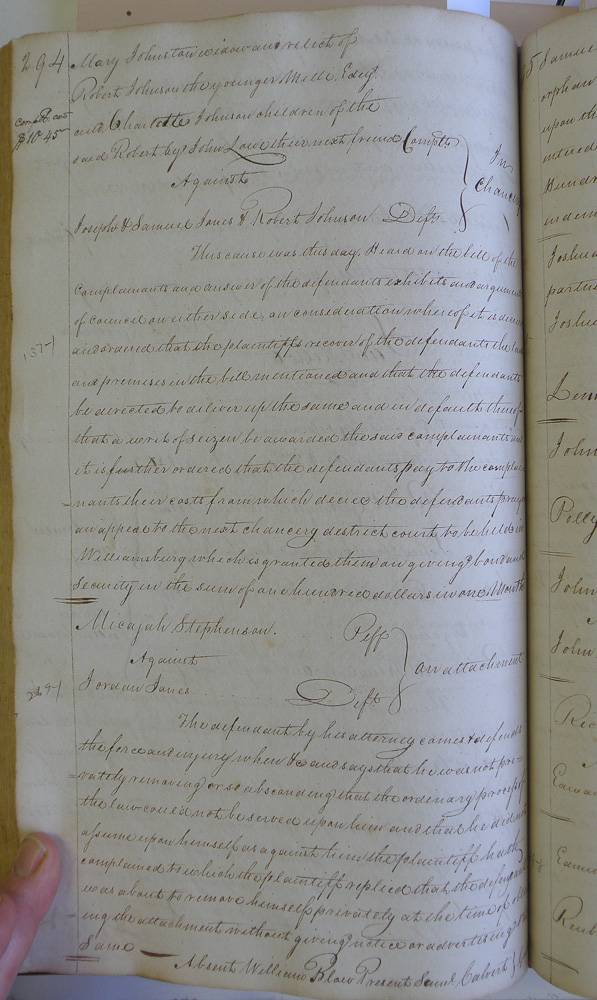 294
Mary Johnston widow and relict of
Robert Johnson the younger Mille, Edey
and Charlotte Johnson children of the
said Robert by John Lowe their next friend Complts
In
Chancery
Against
Joseph & Samuel Jones & Robert Johnson Defts
This cause was this day Heard on the bill of the
Complainants and answer of the defendants exhibits and argument
of Council on either side, on consideration whereof it is decreed
and ordered that the plaintiffs recover of the defendants the land
and premises in the bill mentioned and that the defendants
be directed to deliver up the same and in default thereof
that a writ of seizen be awarded the said complainants and
it is further ordered that the defendants pay to the complai
nants their costs from which decree the defendants pray
an appeal to the next chancery destrict court to be held in
Williamsburg which is granted them on giving bond and
Security in the sum of one hundred dollars in one Month
Micajah Stephenson. Peff
Against
an attachment
Jordan Jones Deft
The defendant by his attorney comes & defends
the force and injury when &c and says that he was not pri-
vately removing or so absconding that the ordinary process of
the law could not be served upon him and that he did not
assume upon himself as against him the plaintiff hath
complained to which the plaintiff replied that the defendant
was about to remove himself privately at the time of obtain
ing the attachment without giving notice or advertising the
Same
Absent William Blow Present Saml Calvert
5 Samuel
orphan
upon the
Joshua
Joshua
John
Polly
John
John